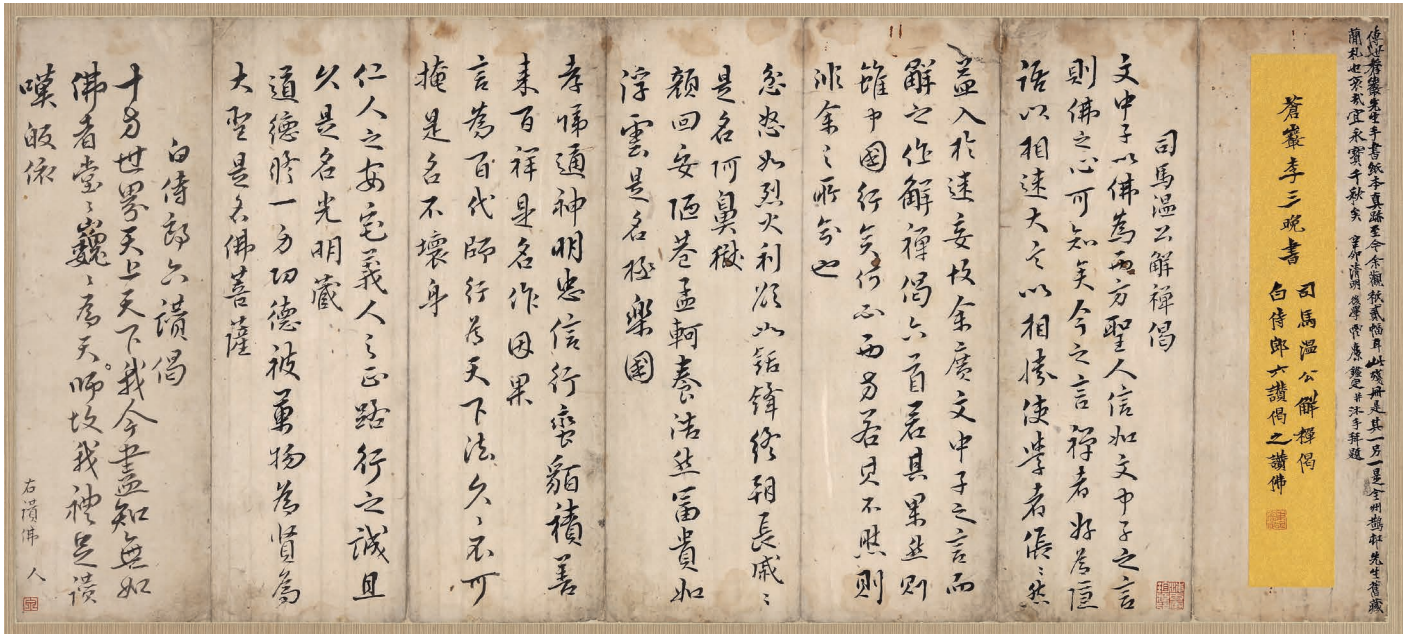 傳世蒼巖先生手書紙本真跡至今余觀祇貳幅耳此殘冊是其一另一是全州鶴邨先生舊藏
簡札也 宜永寶千秋矣 辛卯清明後學 鑑定并沐手拜題
蒼巖李三晚書
司馬溫公解禪偈
白侍郎六讚偈之讚佛
司馬溫公解禪偈
文中子以佛為西方聖人信如文中子之言
則佛之心可知矣今之言禪者好為隱
語以相迷大言以相勝使學者倀〻然
益入於迷妄故余廣文中子之言而
解之作解禪偈六首若其果然則
雖中國行矣何必西方若其不然則
非余之所知也
忿怒如烈火利欲如銛鋒終朝長戚〻
是名阿鼻獄
顏回安陋巷孟軻養浩然富貴如
浮雲是名極樂國
孝悌通神明忠信行蠻貊積善
來百祥是名作因果
言為百代師行為天下法久〻不可
掩是名不壞身
仁人之安宅義人之正路行之誠且
久是名光明藏
道德脩一身功德被萬物為賢為
大聖是名佛菩薩
白侍郎六讚偈
十方世界天上天下我今盡知無如
佛者堂〻巍〻為天師故我禮足讚
嘆皈依
右讚佛 人